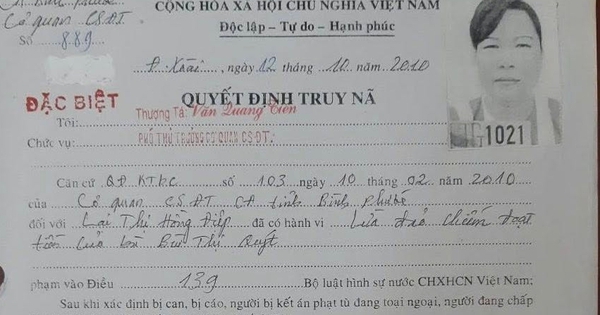 CỘNG HÒA XÃ HỘI CHỦ NGHĨA VIỆT NAM
Cơ quan CSĐT
Độc lập - Tự do - Hạnh phúc
Số 889
Đ. Xoài, ngày 12 tháng 10 năm 2010
ĐẶC BIỆT
QUYẾT ĐỊNH TRUY NÃ
1021
Tôi: Thượng Tá: Văn Quang Tiến
Chức vụ: PHÓ THỦ TRƯỞNG CƠ QUAN CSĐT
Căn cứ QĐ KTBC số 103 ngày 10 tháng 02 năm 2010
của Cơ quan CSĐT CA tỉnh Bình Phước
đối với Lại Thị Hồng Điệp đã có hành vi Lừa đảo chiếm đoạt
tiền của bà Bùi Thị Quýt
phạm vào Điều 139 Bộ luật hình sự nước CHXHCN Việt Nam;
Sau khi xác định bị can, bị cáo, người bị kết án phạt tù đang toại ngoại, người đang chấp